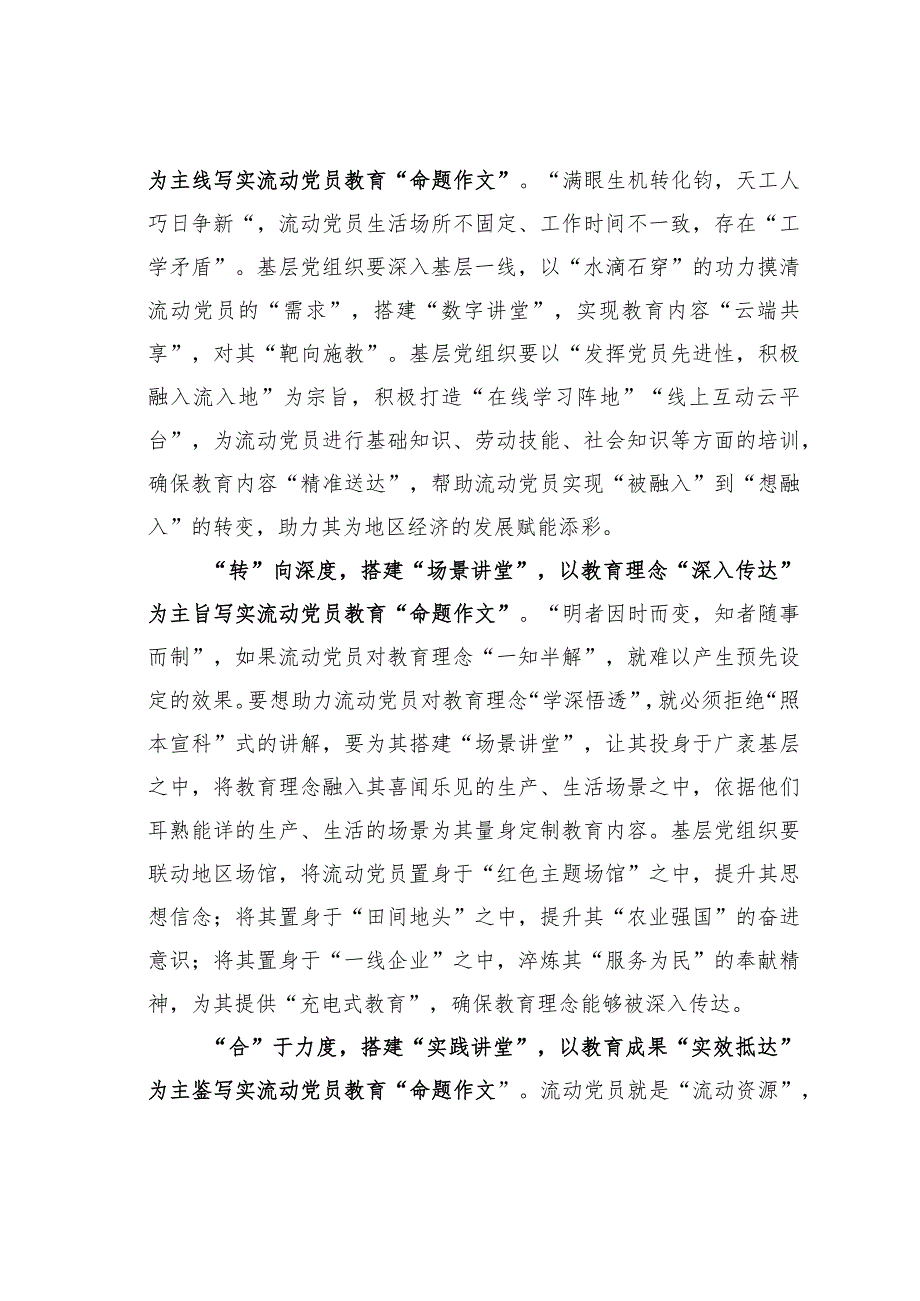 为主线写实流动党员教育“命题作文”。“满眼生机转化钧，天工人
巧日争新“，流动党员生活场所不固定、工作时间不一致，存在“工
学矛盾”。基层党组织要深入基层一线，以“水滴石穿”的功力摸清
流动党员的“需求”，搭建“数字讲堂”，实现教育内容“云端共
享”，对其“靶向施教”。基层党组织要以“发挥党员先进性，积极
融入流入地”为宗旨，积极打造“在线学习阵地”“线上互动云平
台”，为流动党员进行基础知识、劳动技能、社会知识等方面的培训，
确保教育内容“精准送达”，帮助流动党员实现“被融入”到“想融
入”的转变，助力其为地区经济的发展赋能添彩。
“转”向深度，搭建“场景讲堂”，以教育理念“深入传达”
为主旨写实流动党员教育“命题作文”。“明者因时而变，知者随事
而制”，如果流动党员对教育理念“一知半解”，就难以产生预先设
定的效果。要想助力流动党员对教育理念“学深悟透”，就必须拒绝“照
本宣科”式的讲解，要为其搭建“场景讲堂”，让其投身于广袤基层
之中，将教育理念融入其喜闻乐见的生产、生活场景之中，依据他们
耳熟能详的生产、生活的场景为其量身定制教育内容。基层党组织要
联动地区场馆，将流动党员置身于“红色主题场馆”之中，提升其思
想信念；将其置身于“田间地头”之中，提升其“农业强国”的奋进
意识；将其置身于“一线企业”之中，淬炼其“服务为民”的奉献精
神，为其提供“充电式教育”，确保教育理念能够被深入传达。
“合”于力度，搭建“实践讲堂”，以教育成果“实效抵达”
为主鉴写实流动党员教育“命题作文”。流动党员就是“流动资源”，